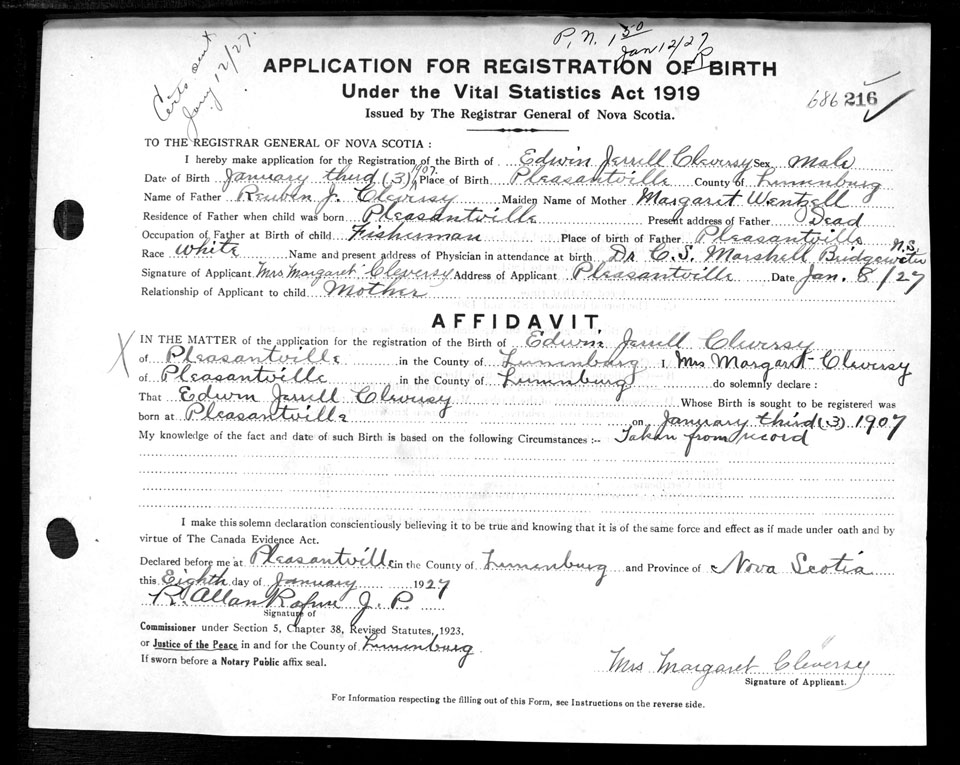 P. N. 1 50
Jan 12/27
R
Certs sent
Jany 12/27.
APPLICATION FOR REGISTRATION OF BIRTH
Under the Vital Statistics Act 1919
Issued by The Registrar General of Nova Scotia.
686 216
TO THE REGISTRAR GENERAL OF NOVA SCOTIA :
I hereby make application for the Registration of the Birth of Edwin Jerrill Cleversy Sex Male
Date of Birth January third (3) 1907. Place of Birth Pleasantville County of Lunenburg
Name of Father Reuben J. Cleversy Maiden Name of Mother Margaret Wentzell
Residence of Father when child was born Pleasantville Present address of Father Dead
Occupation of Father at Birth of child Fisherman Place of birth of Father Pleasantville
Race White Name and present address of Physician in attendance at birth Dr. C. S. Marshell Bridgewater N.S.
Signature of Applicant Mrs Margaret Cleversy Address of Applicant Pleasantville Date Jan. 8/27
Relationship of Applicant to child Mother
AFFIDAVIT.
X IN THE MATTER of the application for the registration of the Birth of Edwin Jerrill Cleversy
of Pleasantville in the County of Lunenburg I, Mrs Margaret Cleversy
of Pleasantville in the County of Lunenburg do solemnly declare :
That Edwin Jerrill Cleversy Whose Birth is sought to be registered was
born at Pleasantville on January third (3) 1907
My knowledge of the fact and date of such Birth is based on the following Circumstances :-- Taken from record
I make this solemn declaration conscientiously believing it to be true and knowing that it is of the same force and effect as if made under oath and by
virtue of The Canada Evidence Act.
Declared before me at Pleasantville in the County of Lunenburg and Province of Nova Scotia
this Eighth day of January 1927
R. Allan J. P.
Signature of
Commissioner under Section 5, Chapter 38, Revised Statutes, 1923.
or Justice of the Peace in and for the County of Lunenburg.
If sworn before a Notary Public affix seal.
Mrs Margaret Cleversy
Signature of Applicant.
For Information respecting the filling out of this Form, see Instructions on the reverse side.